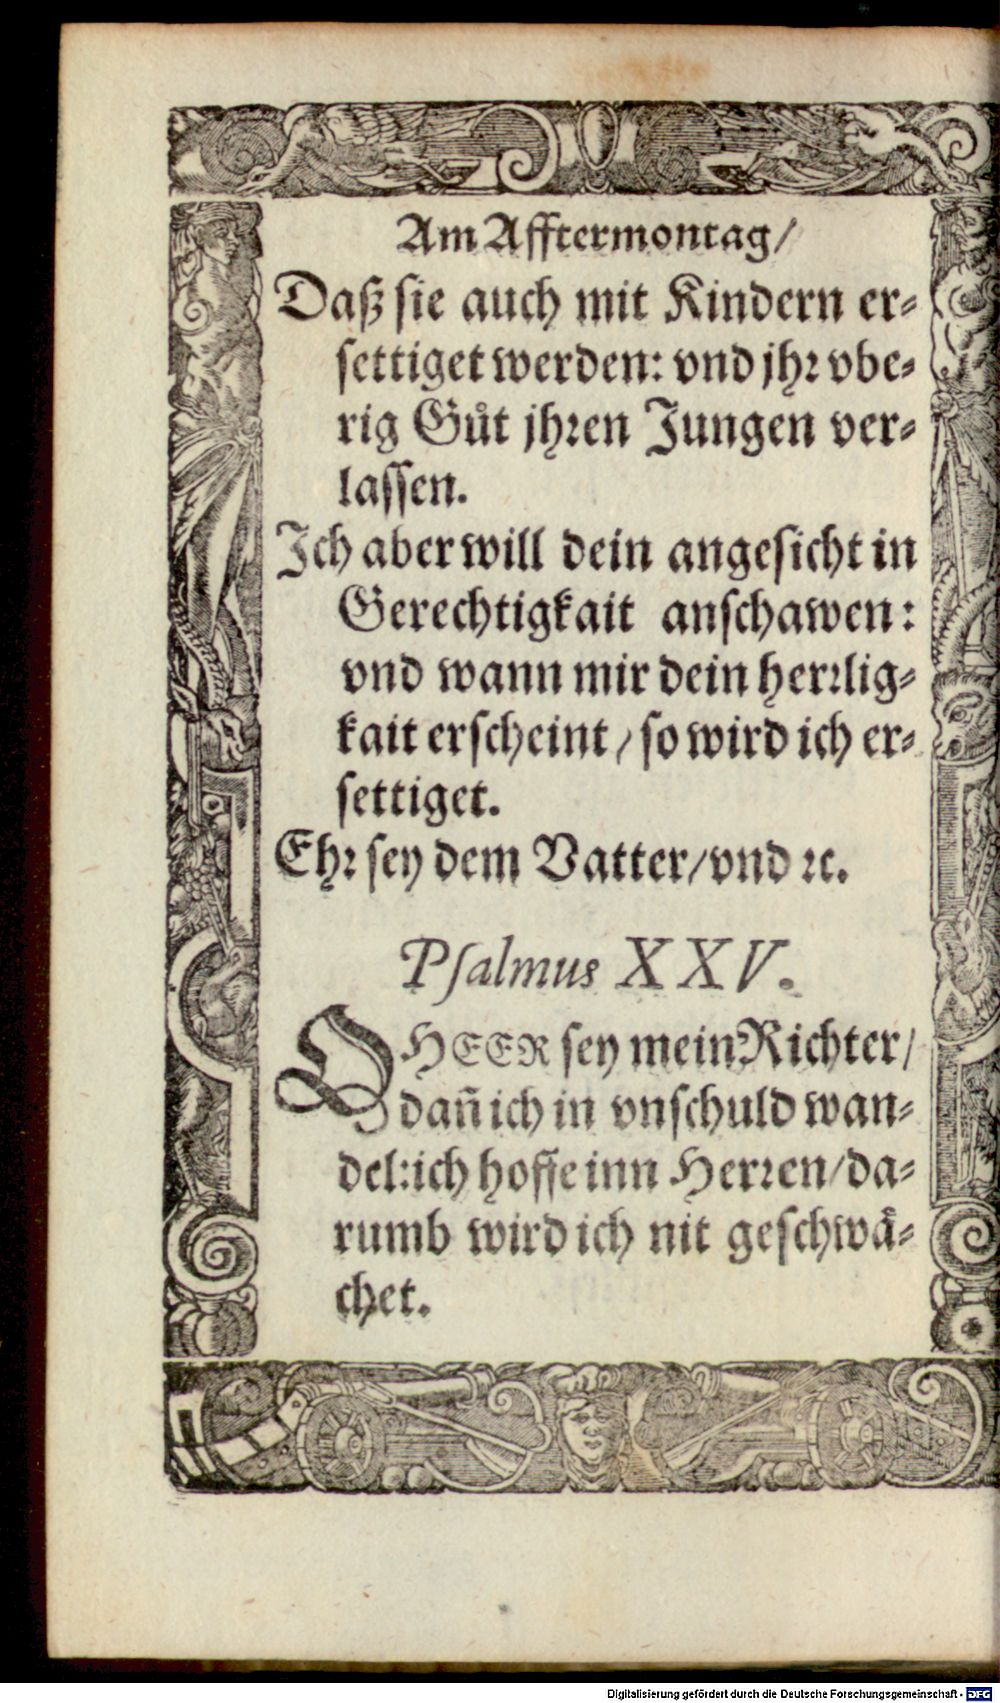 Am Afftermontag/
Daß sie auch mit Kindern er⸗
settiget werden: vnd jhr vbe⸗
rig Guͦt jhren Jungen ver⸗
lassen.
Ich aber will dein angesicht in
Gerechtigkait anschawen:
vnd wann mir dein herrlig⸗
kait erscheint / so wird ich er⸗
settiget.
Ehr sey dem Vatter/vnd ꝛc.
Psalmus XXV.
O HEER sey mein Richter/
dañ ich in vnschuld wan⸗
del: ich hoffe inn Herren/da⸗
rumb wird ich nit geschwaͤ⸗
chet.
Digitalisierung gefördert durch die Deutsche Forschungsgemeinschaft - DFG